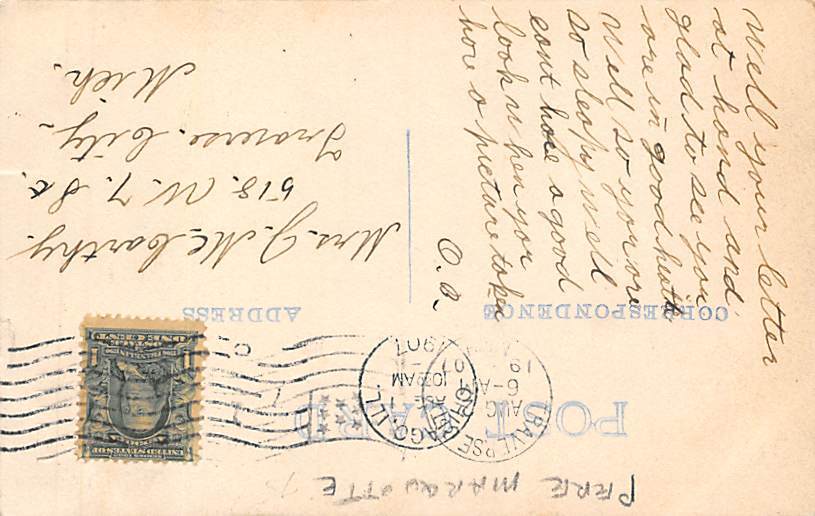 PERE MARQUETTE
POST CARD
TRAVERSE
AUG
6-A
19
07
CHICAGO, ILL.
10 30 AM
1907
UNITED STATES OF
FRANKLIN
ONE CENT
1
CORRESPONDENCE
ADDRESS
Well your letter
at hand and
glad to see you
are in good health
Well so you are
so sleepy well
cant have a good
look when you
have a picture taken
O. O.
Mrs. J. McCarthy.
518. W. 7. St.
Traverse City.
Mich.